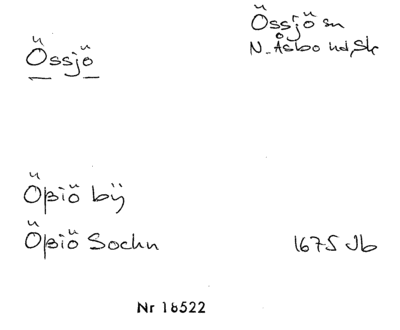 Össjö
Össjö sn
N. Åsbo hd, Sk
Öþiö bÿ
Öþiö Sochn
1675 Jb
Nr 16522